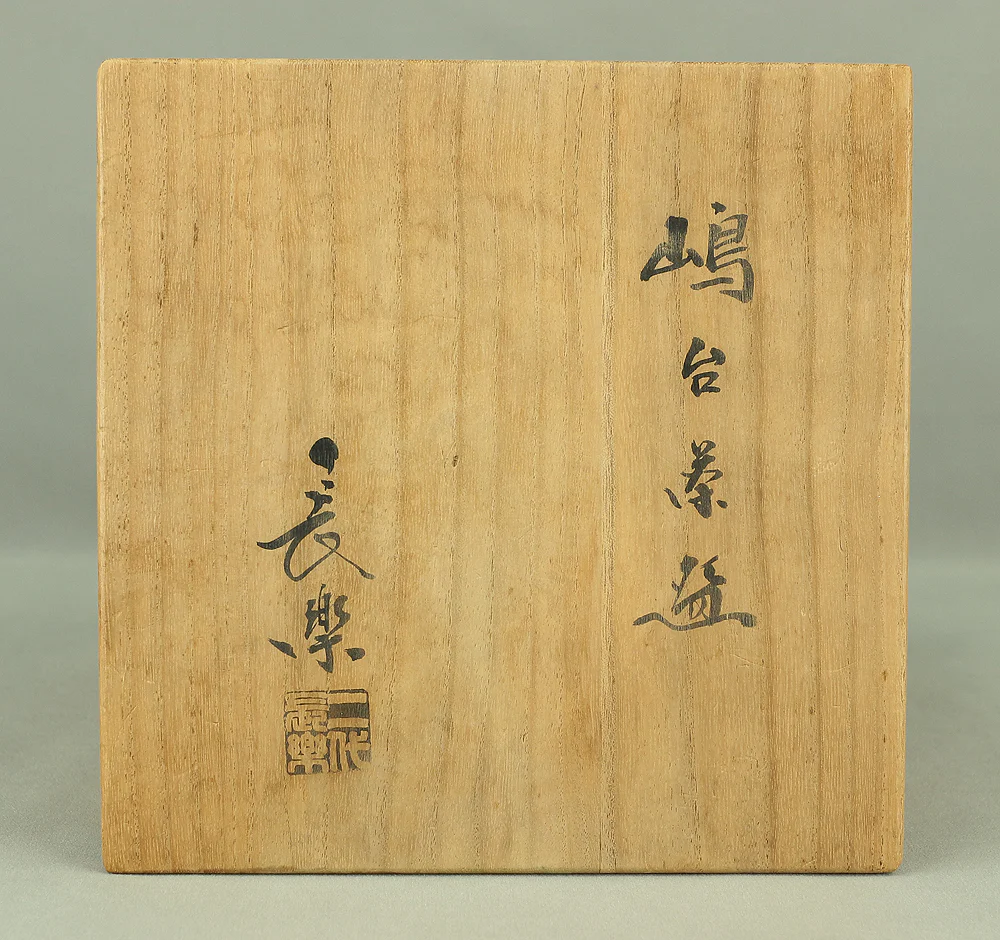 嶋台茶盌
長樂
二代長樂